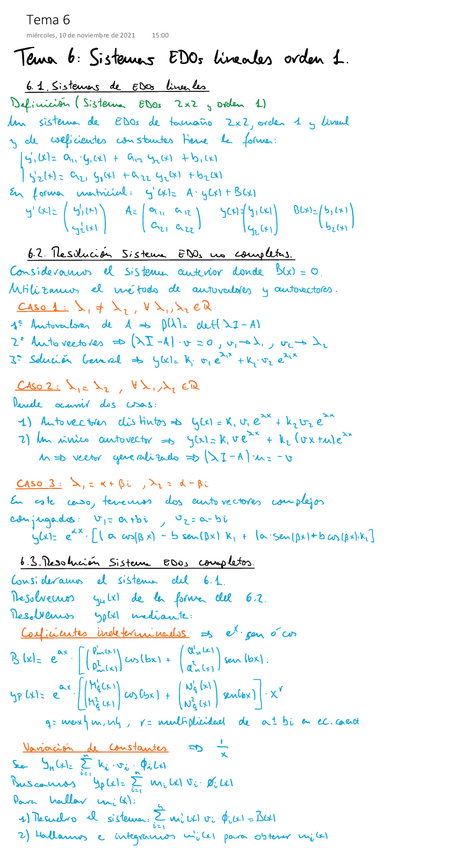 Tema 6
miércoles, 10 de noviembre de 2021 15:00
Tema 6: Sistemas EDOs lineales orden 1.
6.1. Sistemas de EDOs lineales
Definición (Sistema EDOs 2x2 y orden 1)
Un sistema de EDOs de tamaño 2x2, orden 1 y lineal
y de coeficientes constantes tiene la forma:
y'₁(x) = a₁₁·y₁(x) + a₁₂ y₂(x) + b₁(x)
y'₂(x) = a₂₁ y₁(x) + a₂₂ y₂(x) + b₂(x)
En forma matricial: y'(x) = A·y(x) + B(x)
y'(x) = (y'₁(x) y'₂(x)) A = (a₁₁ a₁₂ a₂₁ a₂₂) y(x) = (y₁(x) y₂(x)) B(x) = (b₁(x) b₂(x))
6.2. Resolución Sistema EDOs no completos.
Consideramos el sistema anterior donde B(x) = 0.
Utilizamos el método de autovalores y autovectores.
CASO 1: λ₁ ≠ λ₂, ∀ λ₁, λ₂ ∈ ℝ
1º Autovalores de A ⇒ P(λ) = det(λI-A)
2º Autovectores ⇒ (λI-A)·v = 0, v₁→λ₁, v₂→λ₂
3º Solución General ⇒ y(x) = K₁ v₁ e^{λ₁x} + K₂ v₂ e^{λ₂x}
CASO 2: λ₁ = λ₂, ∀ λ₁, λ₂ ∈ ℝ
Puede ocurrir dos cosas:
1) Autovectores distintos ⇒ y(x) = K₁ v₁ e^{λx} + K₂ v₂ e^{λx}
2) Un único autovector ⇒ y(x) = K₁ v e^{λx} + K₂ (vx+u) e^{λx}
u ⇒ vector generalizado ⇒ (λI-A)·u = -v
CASO 3: λ₁ = α + βi, λ₂ = α - βi
En este caso, tenemos dos autovectores complejos
conjugados: v₁ = a+bi, v₂ = a-bi
y(x) = e^{αx}·[(a cos(βx) - b sen(βx)) K₁ + (a·sen(βx) + b cos(βx)) K₂]
6.3. Resolución Sistema EDOs completos.
Consideramos el sistema del 6.1.
Resolvemos y_H(x) de la forma del 6.2.
Resolvemos y_P(x) mediante:
Coeficientes Indeterminados ⇒ eˣ, sen ó cos
B(x) = e^{ax}·[(P¹m(x) P²m(x)) cos(bx) + (Q¹n(x) Q²n(x)) sen(bx)].
y_P(x) = e^{ax}·[(M¹q(x) M²q(x)) cos(bx) + (N¹q(x) N²q(x)) sen(bx)]·xʳ
q = max{m,n}, r = multiplicidad de a±bi en ec. caract
Variación de Constantes ⇒ 1/x
Sea y_H(x) = Σ_{i=1}^{n} K_i·v_i·φ_i(x)
Buscamos y_P(x) = Σ_{i=1}^{n} m_i(x) v_i·φ_i(x)
Para hallar m_i(x):
1) Resuelvo el sistema: Σ_{i=1}^{n} m_i'(x) v_i·φ_i(x) = B(x)
2) Hallamos e integramos m_i'(x) para obtener m_i(x)